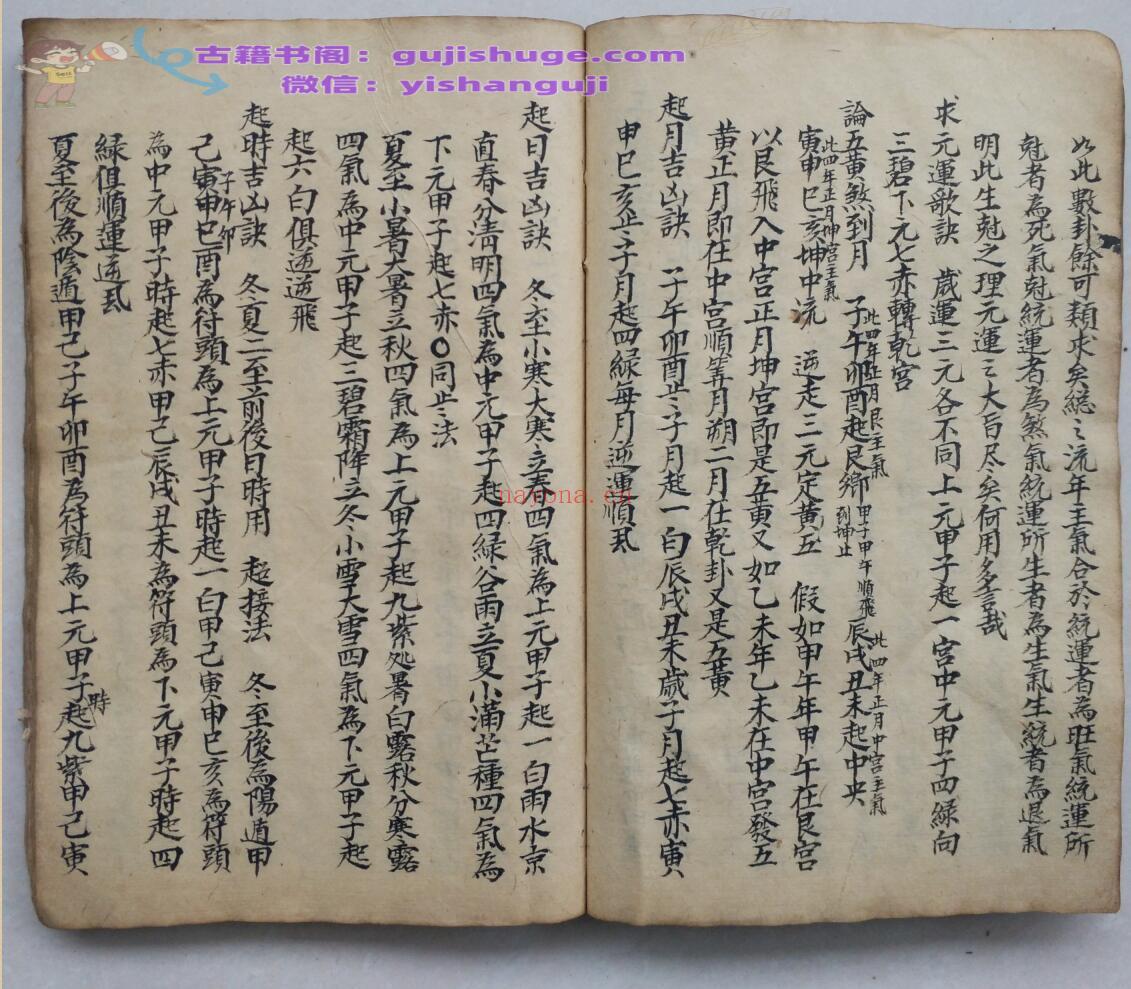 古籍书阁：gujishuge.com
微信：yishanguji
如此數卦餘可類求矣總之流年主氣合於統運者為旺氣統運所
尅者為死氣尅統運者為煞氣統運所生者為生氣生統者為退氣
明此生尅之理元運之大旨尽矣何用多言哉
求元運歌訣　歲運三元各不同上元甲子起一宮中元甲子四綠向
三碧下元七赤轉乾宮
論五黃煞到月　子午卯酉起艮鄉 此四年正月艮主氣 甲子甲午順飛到坤止 辰戌丑未起中央 此四年正月中宮主氣
寅申巳亥坤中流 此四年正月坤宮主氣　逆走三元定黃五　假如甲午年甲午在艮宮
以艮飛入中宮正月坤宮即是五黃又如乙未年乙未在中宮發五
黃正月即在中宮順筭月朔二月在乾卦又是五黃
起月吉凶訣　子午卯酉之子月起一白辰戌丑未歲子月起七赤寅
申巳亥之子月起四綠每月逆運順飛
起日吉凶訣　冬至小寒大寒立春四氣為上元甲子起一白雨水京
直春分清明四氣為中元甲子起四綠谷雨立夏小滿芒種四氣為
下元甲子起七赤〇同此法
夏至小暑大暑立秋四氣為上元甲子起九紫処暑白露秋分寒露
四氣為中元甲子起三碧霜降立冬小雪大雪四氣為下元甲子起
起六白俱逆逆飛
起時吉凶訣　冬夏二至前後日時用　超接法　冬至後為陽遁甲
己子午卯酉為符頭為上元甲子時起一白甲己寅申巳亥為符頭
為中元甲子時起七赤甲己辰戌丑未為符頭為下元甲子時起四
綠俱順運逆飛
夏至後為陰遁甲己子午卯酉為符頭為上元甲子時起九紫甲己寅
nayona.cn